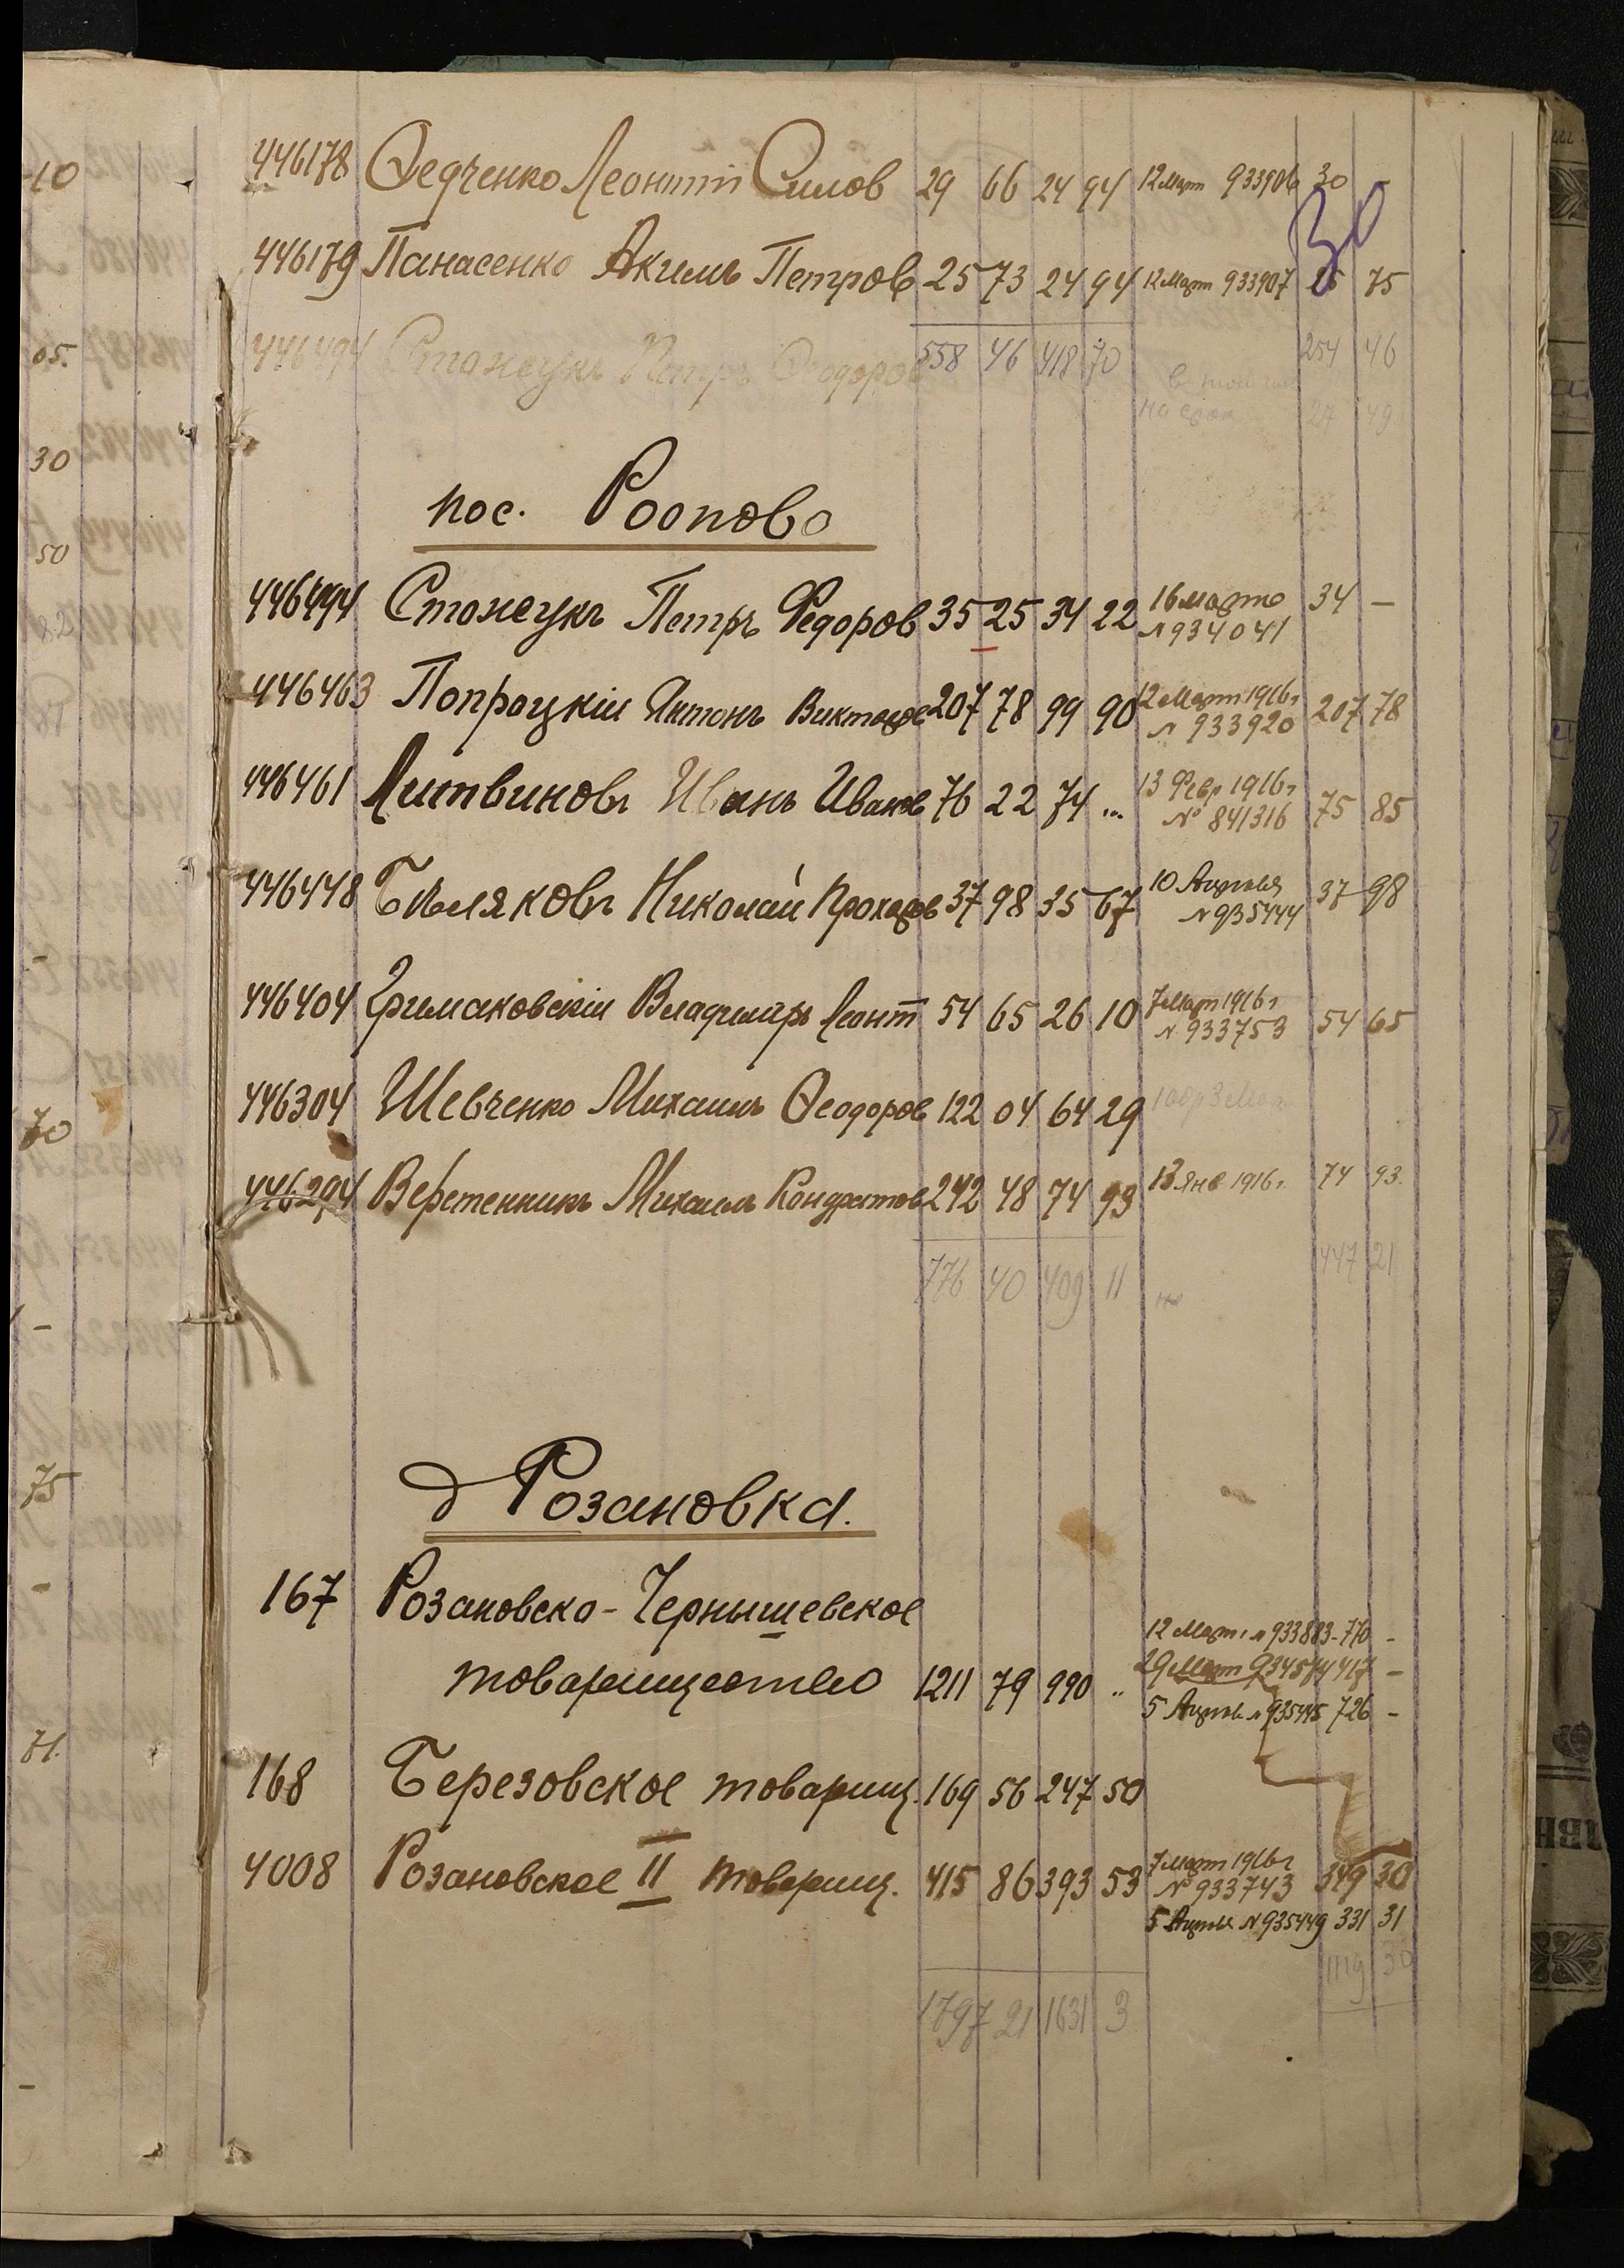 446178 Ѳедченко Леонтій Силов 29 66 24 94 12 Март 933906 30 -
30
446179 Панасенко Акимъ Петров 25 73 24 94 12 Март 933907 25 75
446494 Стонецукъ Петръ Ѳеодоров 558 46 418 70 254 46
в том
на срок 27 49
пос. Роопово
446494 Стонецукъ Петръ Федоров 35 25 34 22 16 марта 34 —
№ 934041
446463 Попроцкій Антонъ Викторов 207 78 99 90 12 Март 1916 г 207 78
№ 933920
446461 Литвиновъ Иванъ Иванов 76 22 74 ... 13 Февр 1916 г 75 85
№ 841316
446448 Бѣляковъ Николай Прохоров 37 98 35 67 10 Апрѣля 37 98
№ 935444
446404 Гримаковскій Владиміръ Леонт 54 65 26 10 7 Март 1916 г 54 65
№ 933753
446304 Шевченко Михаилъ Ѳеодоров 122 04 64 29
446294 Веретенникъ Михаилъ Кондратов 242 48 74 93 13 Янв 1916 г. 74 93.
776 40 409 11 447 21
д Розановка.
167 Розановско-Чернышевское
12 Март № 933883 - 770 -
товарищество 1211 79 990 .. 29 Март 934574 417 -
5 Апрѣл № 935445 726 -
168 Березовское товарищ. 169 56 247 50
4008 Розановское II товарищ. 415 86 393 53 7 Март 1916 г 349 30
№ 933743
5 Апрѣля № 935449 331 31
1119 30
1797 21 1631 3